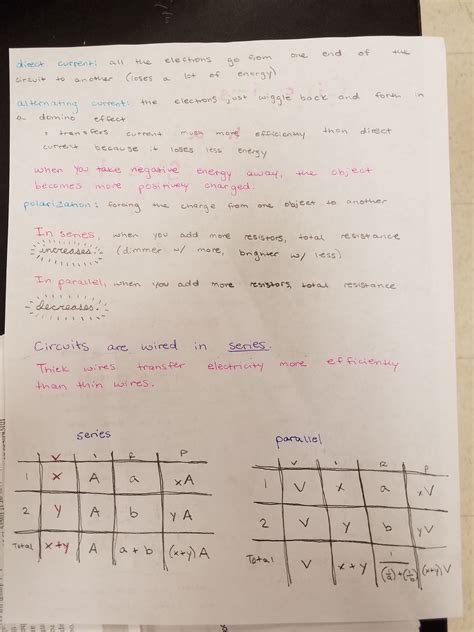 direct current: all the electrons go from one end of the
circuit to another (loses a lot of energy)
alternating current: the electrons just wiggle back and forth in
a domino effect
transfers current much more efficiently than direct
current because it loses less energy
when you take negative energy away, the object
becomes more positively charged.
polarization: forcing the charge from one object to another
In series, when you add more resistors, total resistance
increases. (dimmer w/ more, brighter w/ less)
In parallel, when you add more resistors, total resistance
decreases.
Circuits are wired in series.
Thick wires transfer electricity more efficiently
than thin wires.
series
V I R P
1 x A a xA
2 y A b yA
Total x+y A a+b (x+y)A
parallel
V I R P
1 V x a xV
2 V y b yV
Total V x+y 1/(1/a)+(1/b) (x+y)V